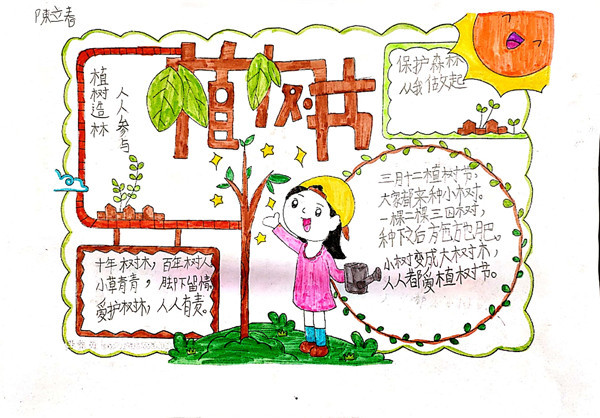 陳立春
植树节
植树造林
人人参与
保护森林
从我做起
十年树木，百年树人
小草青青，脚下留情
爱护树林，人人有责。
三月十二植树节，
大家都来种小树。
一棵二棵三四树，
种下之后 肥。
小树变成大树木，
人人都爱植树节。